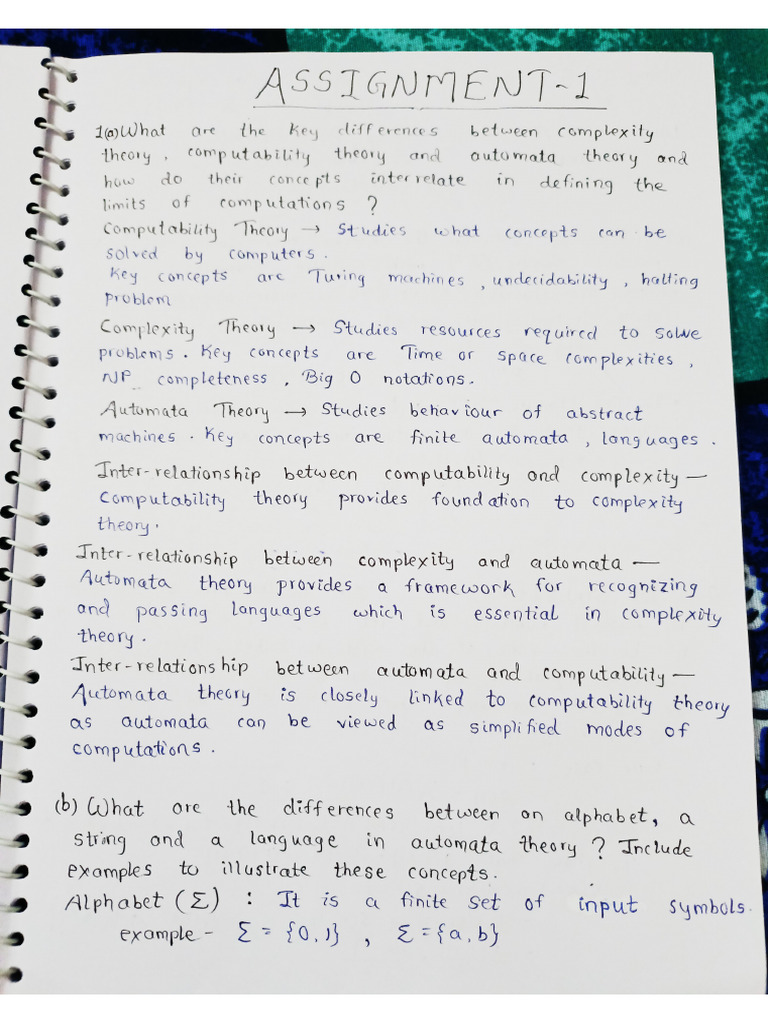 ASSIGNMENT-1
1(a) What are the key differences between complexity
theory, computability theory and automata theory and
how do their concepts interrelate in defining the
limits of computations ?
Computability Theory → Studies what concepts can be
solved by computers.
Key concepts are Turing machines, undecidability, halting
problem
Complexity Theory → Studies resources required to solve
problems. Key concepts are Time or space complexities,
NP completeness, Big O notations.
Automata Theory → Studies behaviour of abstract
machines. Key concepts are finite automata, languages.
Inter-relationship between computability and complexity —
Computability theory provides foundation to complexity
theory.
Inter-relationship between complexity and automata —
Automata theory provides a framework for recognizing
and passing languages which is essential in complexity
theory.
Inter-relationship between automata and computability —
Automata theory is closely linked to computability theory
as automata can be viewed as simplified modes of
computations.
(b) What are the differences between an alphabet, a
string and a language in automata theory ? Include
examples to illustrate these concepts.
Alphabet (Σ) : It is a finite set of input symbols.
example - Σ = {0,1} , Σ = {a,b}